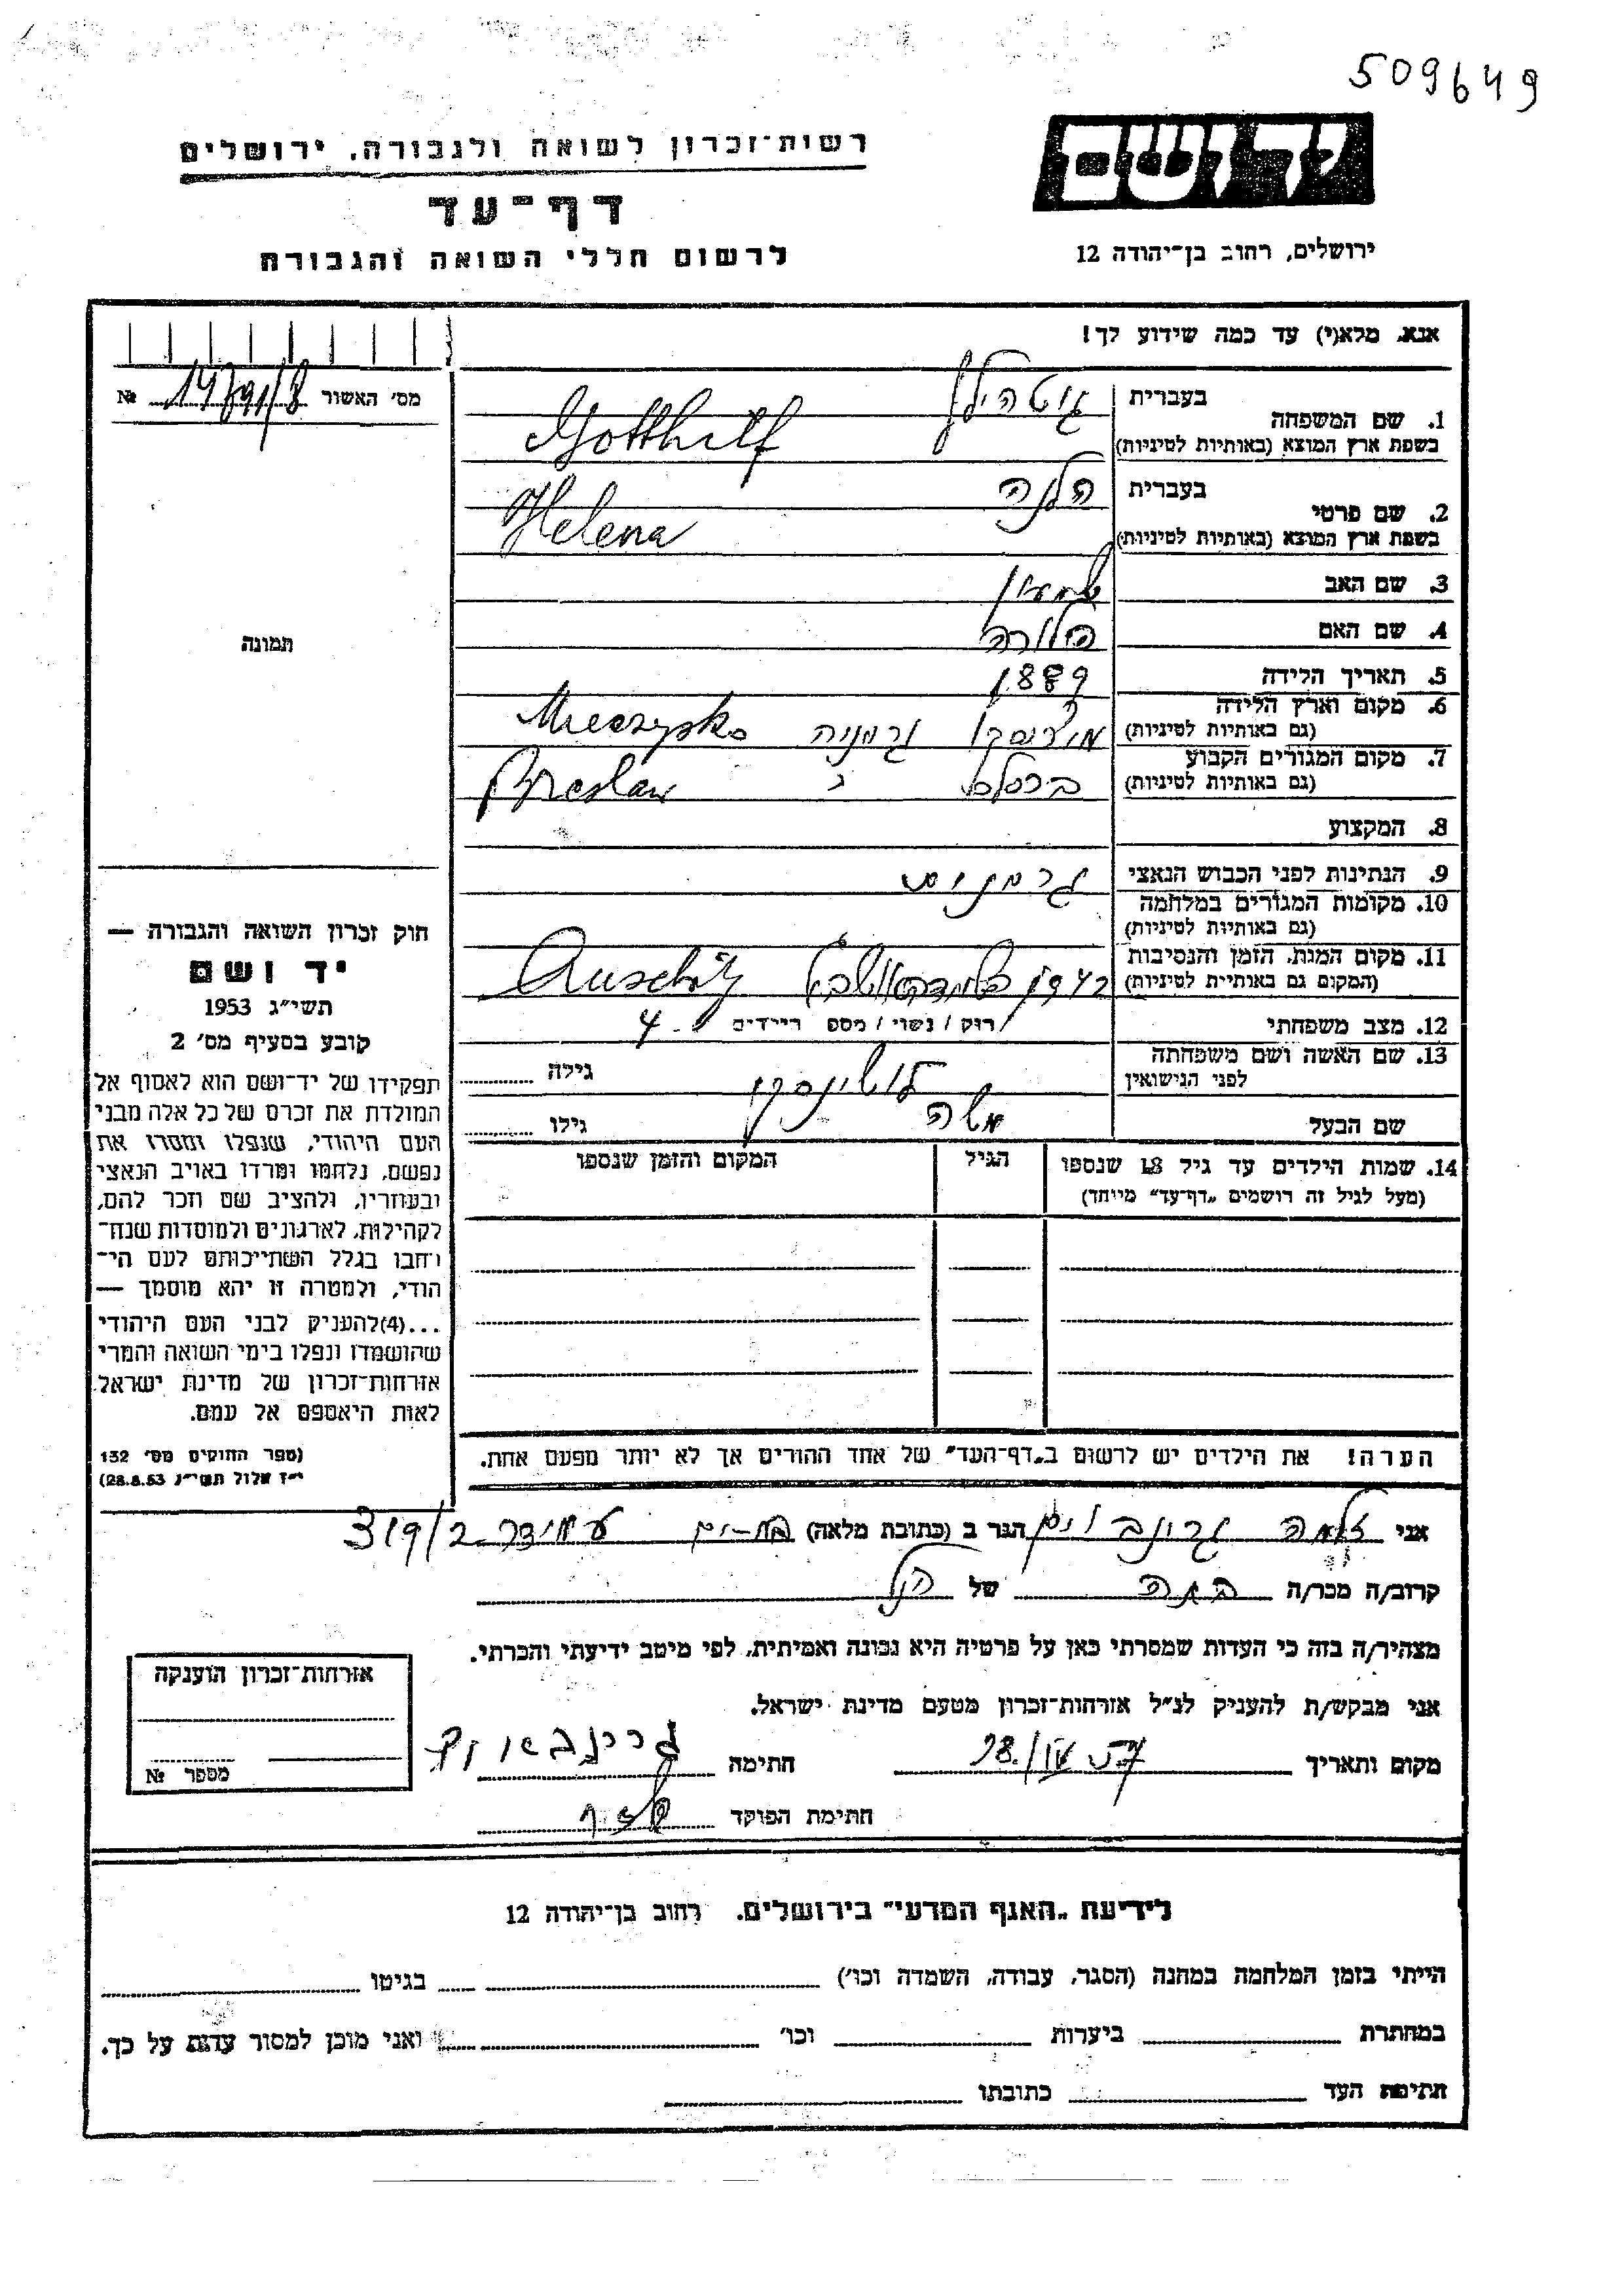 509649
רשות־זכרון לשואה ולגבורה, ירושלים
ידושם
דף־עד
ירושלים, רחוב בן־יהודה 12
לרשום חללי השואה והגבורה
אנא, מלא(י) עד כמה שידוע לך!
מס׳ האשור № 14791/8
1. שם המשפחה
בעברית גוטהילף
בשפת ארץ המוצא (באותיות לטיניות) Gotthilf
2. שם פרטי
בעברית הלנה
בשפת ארץ המוצא (באותיות לטיניות) Helena
3. שם האב שמעון
4. שם האם
5. תאריך הלידה 1889
6. מקום וארץ הלידה
(גם באותיות לטיניות) גרמניה
7. מקום המגורים הקבוע
(גם באותיות לטיניות) ברסלב Breslau
8. המקצוע
9. הנתינות לפני הכבוש הנאצי
10. מקומות המגורים במלחמה
(גם באותיות לטיניות)
11. מקום המות, הזמן והנסיבות
(המקום גם באותיות לטיניות) 1942
12. מצב משפחתי רווק / נשוי / מספר הילדים 4
13. שם האשה ושם משפחתה
לפני הנישואין גילה
שם הבעל משה גילו
14. שמות הילדים עד גיל 18 שנספו
(מעל לגיל זה רושמים „דף־עד״ מיוחד)
הגיל
המקום והזמן שנספו
הערה! את הילדים יש לרשום ב„דף־העד״ של אחד ההורים אך לא יותר מפעם אחת.
תמונה
חוק זכרון השואה והגבורה —
יד ושם
תשי״ג 1953
קובע בסעיף מס׳ 2
תפקידו של יד־ושם הוא לאסוף אל
המולדת את זכרם של כל אלה מבני
העם היהודי, שנפלו ומסרו את
נפשם, נלחמו ומרדו באויב הנאצי
ובעוזריו, ולהציב שם וזכר להם,
לקהילות, לארגונים ולמוסדות שנח־
רבו בגלל השתייכותם לעם הי־
הודי, ולמטרה זו יהא מוסמך —
...(4)להעניק לבני העם היהודי
שהושמדו ונפלו בימי השואה והמרי
אזרחות־זכרון של מדינת ישראל
לאות היאספם אל עמם.
(ספר החוקים מס׳ 132
י״ז אלול תשי״ג 28.8.53)
אני הגר ב (כתובת מלאה) עמידר 319/2
קרוב/ה מכר/ה בתה של הנ״ל
מצהיר/ה בזה כי העדות שמסרתי כאן על פרטיה היא נכונה ואמיתית, לפי מיטב ידיעתי והכרתי.
אני מבקש/ת להעניק לנ״ל אזרחות־זכרון מטעם מדינת ישראל.
מקום ותאריך חתימה
חתימת הפוקד
אזרחות־זכרון הוענקה
מספר №
לידיעת „האגף המדעי״ בירושלים, רחוב בן־יהודה 12
הייתי בזמן המלחמה במחנה (הסגר, עבודה, השמדה וכו׳) בגיטו
במחתרת ביערות וכו׳ ואני מוכן למסור עדות על כך.
חתימת העד כתובתו